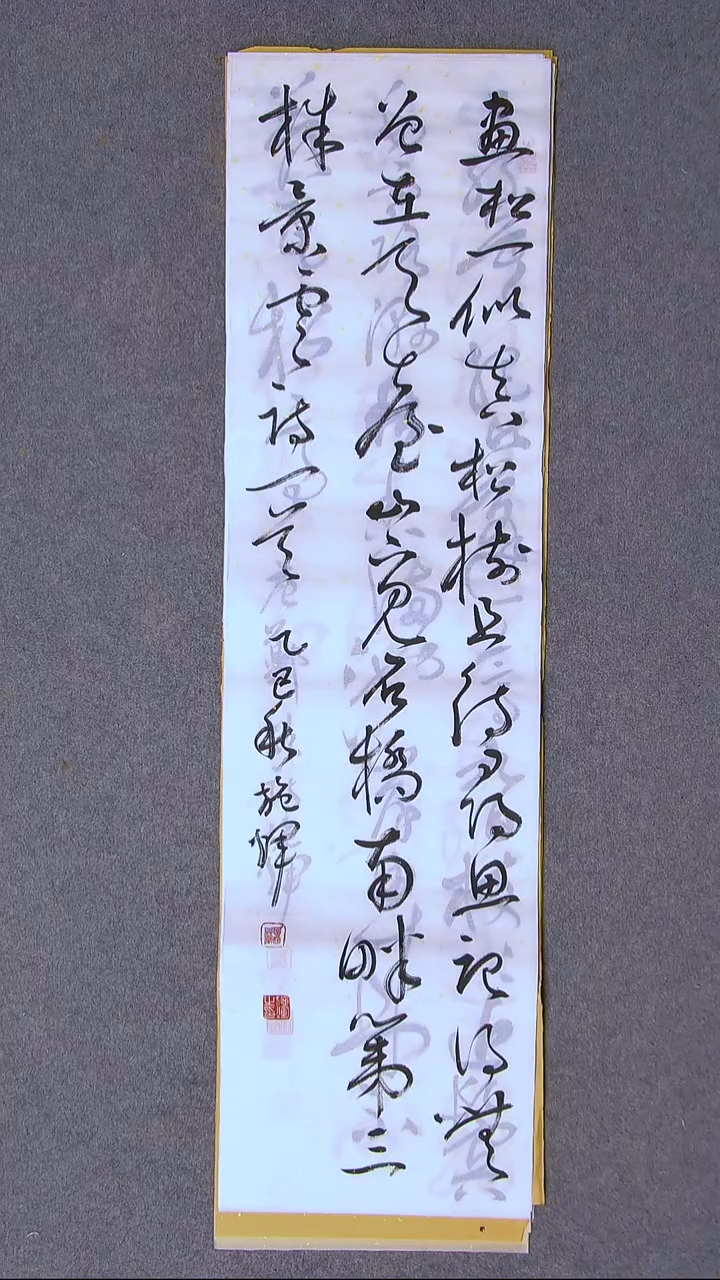 畫松一似真松樹且待尋思記得無
曾在天臺山上見石橋南畔第三
株景雲詩一首乙巳秋施輝